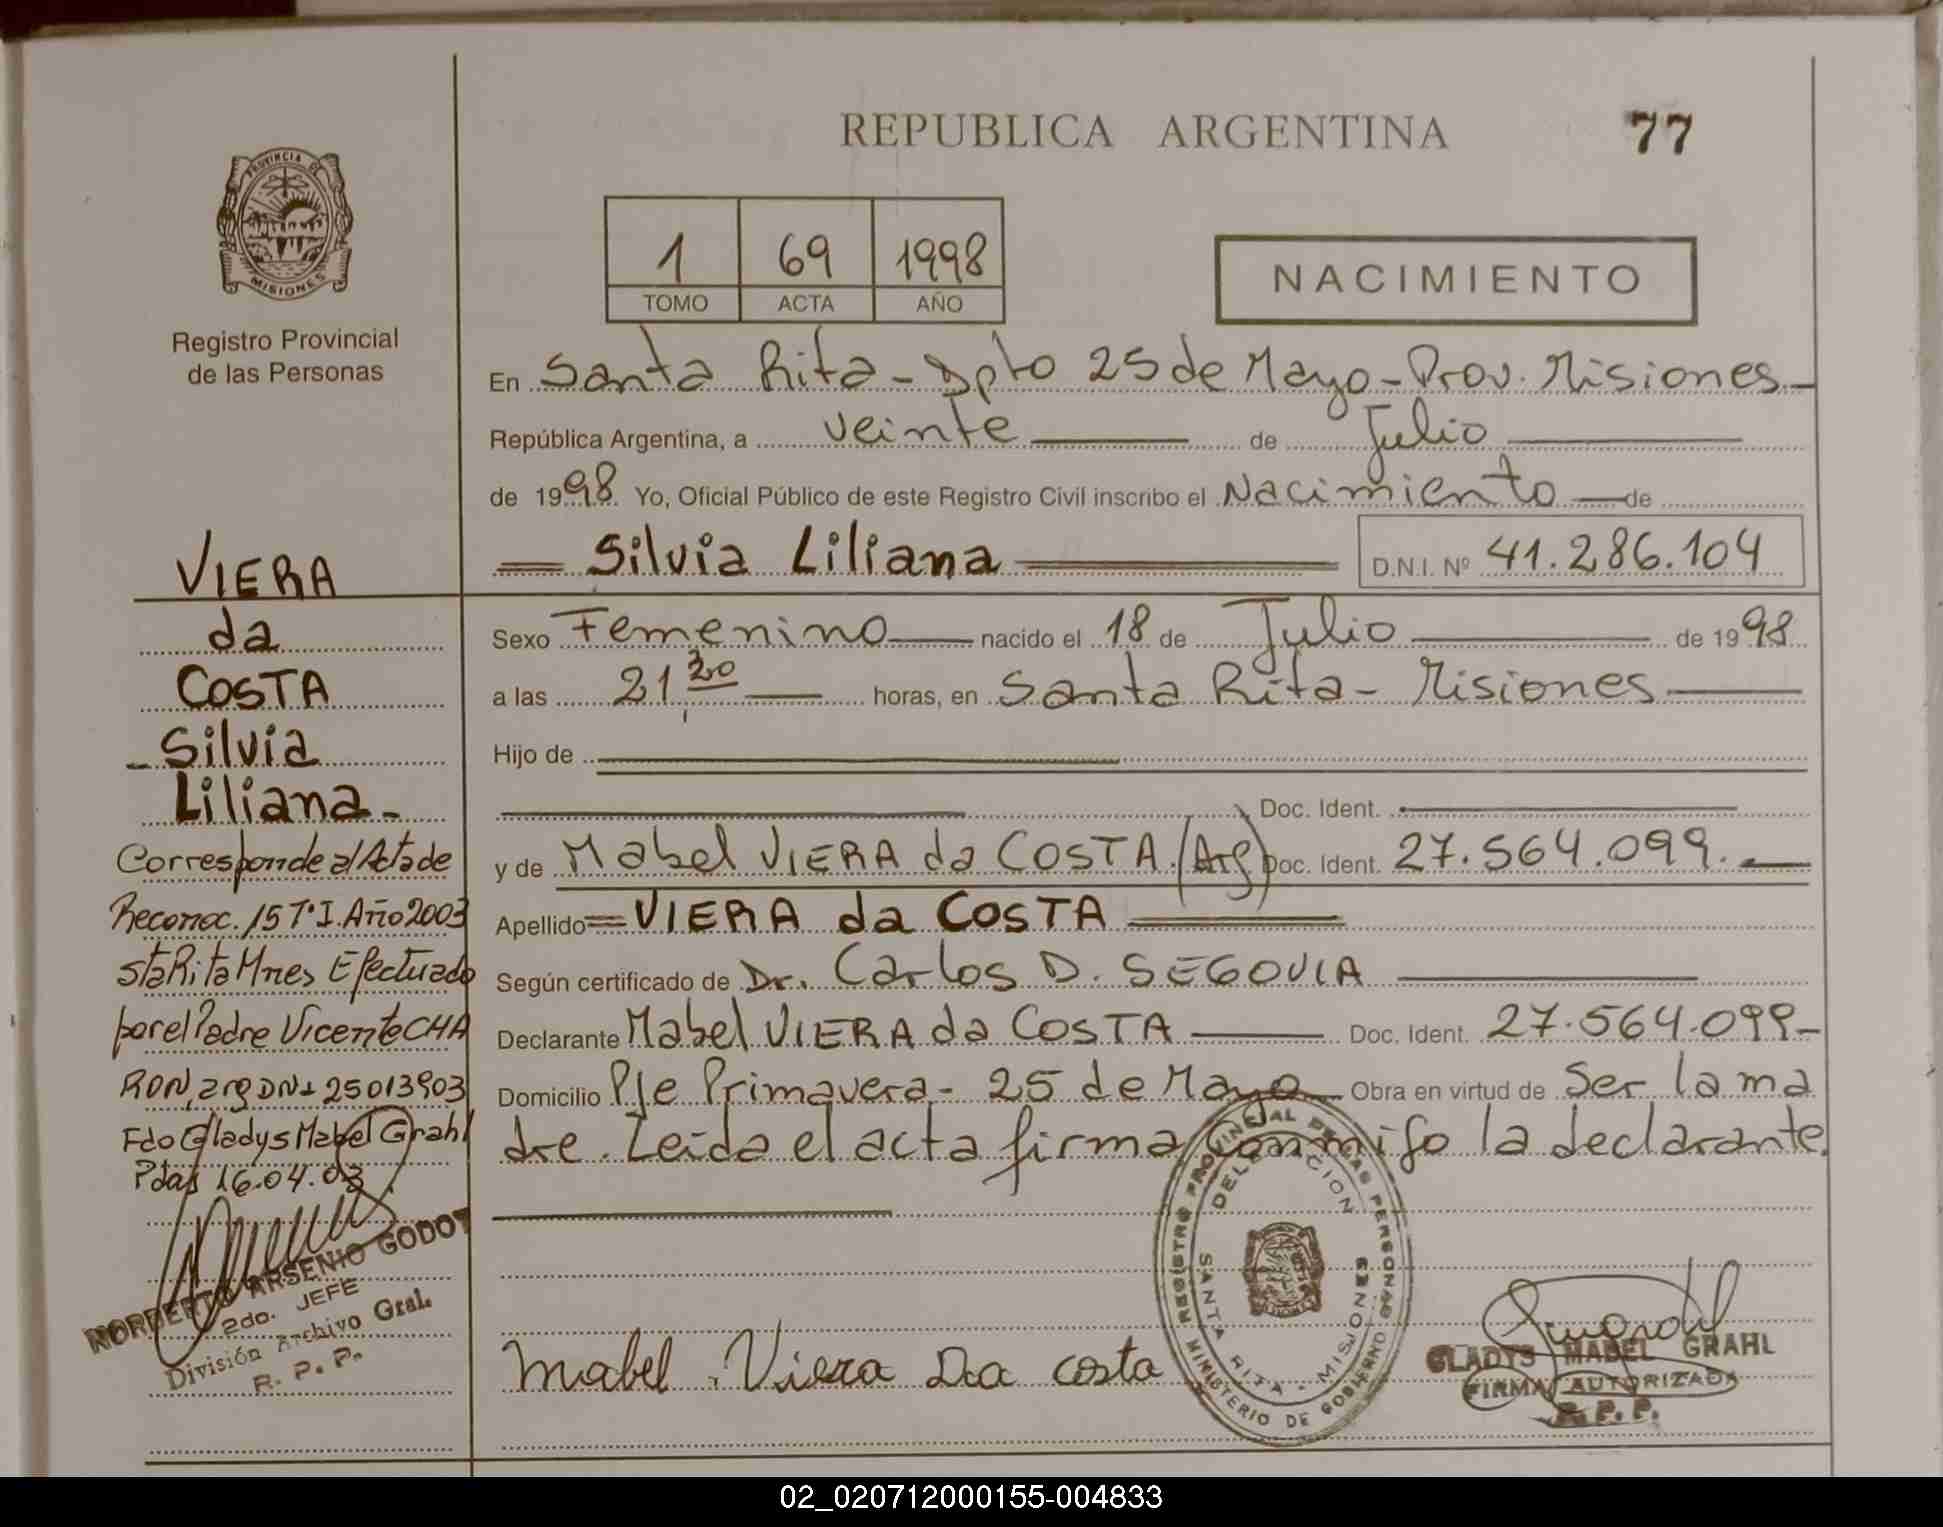 REPUBLICA ARGENTINA
77
PROVINCIA DE
MISIONES
Registro Provincial
de las Personas
1 69 1998
TOMO ACTA AÑO
NACIMIENTO
En Santa Rita - Dpto 25 de Mayo - Prov. Misiones
República Argentina, a veinte de Julio
de 1998. Yo, Oficial Público de este Registro Civil inscribo el Nacimiento de
Silvia Liliana D.N.I. Nº 41.286.104
Sexo Femenino nacido el 18 de Julio de 1998
a las 21 20 horas, en Santa Rita - Misiones
Hijo de
Doc. Ident.
y de Mabel VIERA da COSTA. (Arg) Doc. Ident. 27.564.099.
Apellido VIERA da COSTA
Según certificado de Dr. Carlos D. SEGOVIA
Declarante Mabel VIERA da COSTA Doc. Ident. 27.564.099-
Domicilio Pje Primavera - 25 de Mayo Obra en virtud de ser la ma
dre. Leída el acta firma conmigo la declarante.
VIERA
da
COSTA
- Silvia
Liliana -
Corresponde al Acta de
Reconoc. 15 Tº I. Año 2003
Sta Rita Mnes Efectuado
por el Padre Vicente CHA
RON, arg DNI 25013903
Fdo Gladys Mabel Grahl
Pdas 16.04.03
NORBERTO ARSENIO GODOY
2do. JEFE
División Archivo Gral.
R. P. P.
Mabel Viera Da costa
REGISTRO PROVINCIAL DE LAS PERSONAS
DELEGACION
SANTA RITA - MISIONES
MINISTERIO DE GOBIERNO
GLADYS MABEL GRAHL
FIRMA AUTORIZADA
R. P. P.
02_020712000155-004833